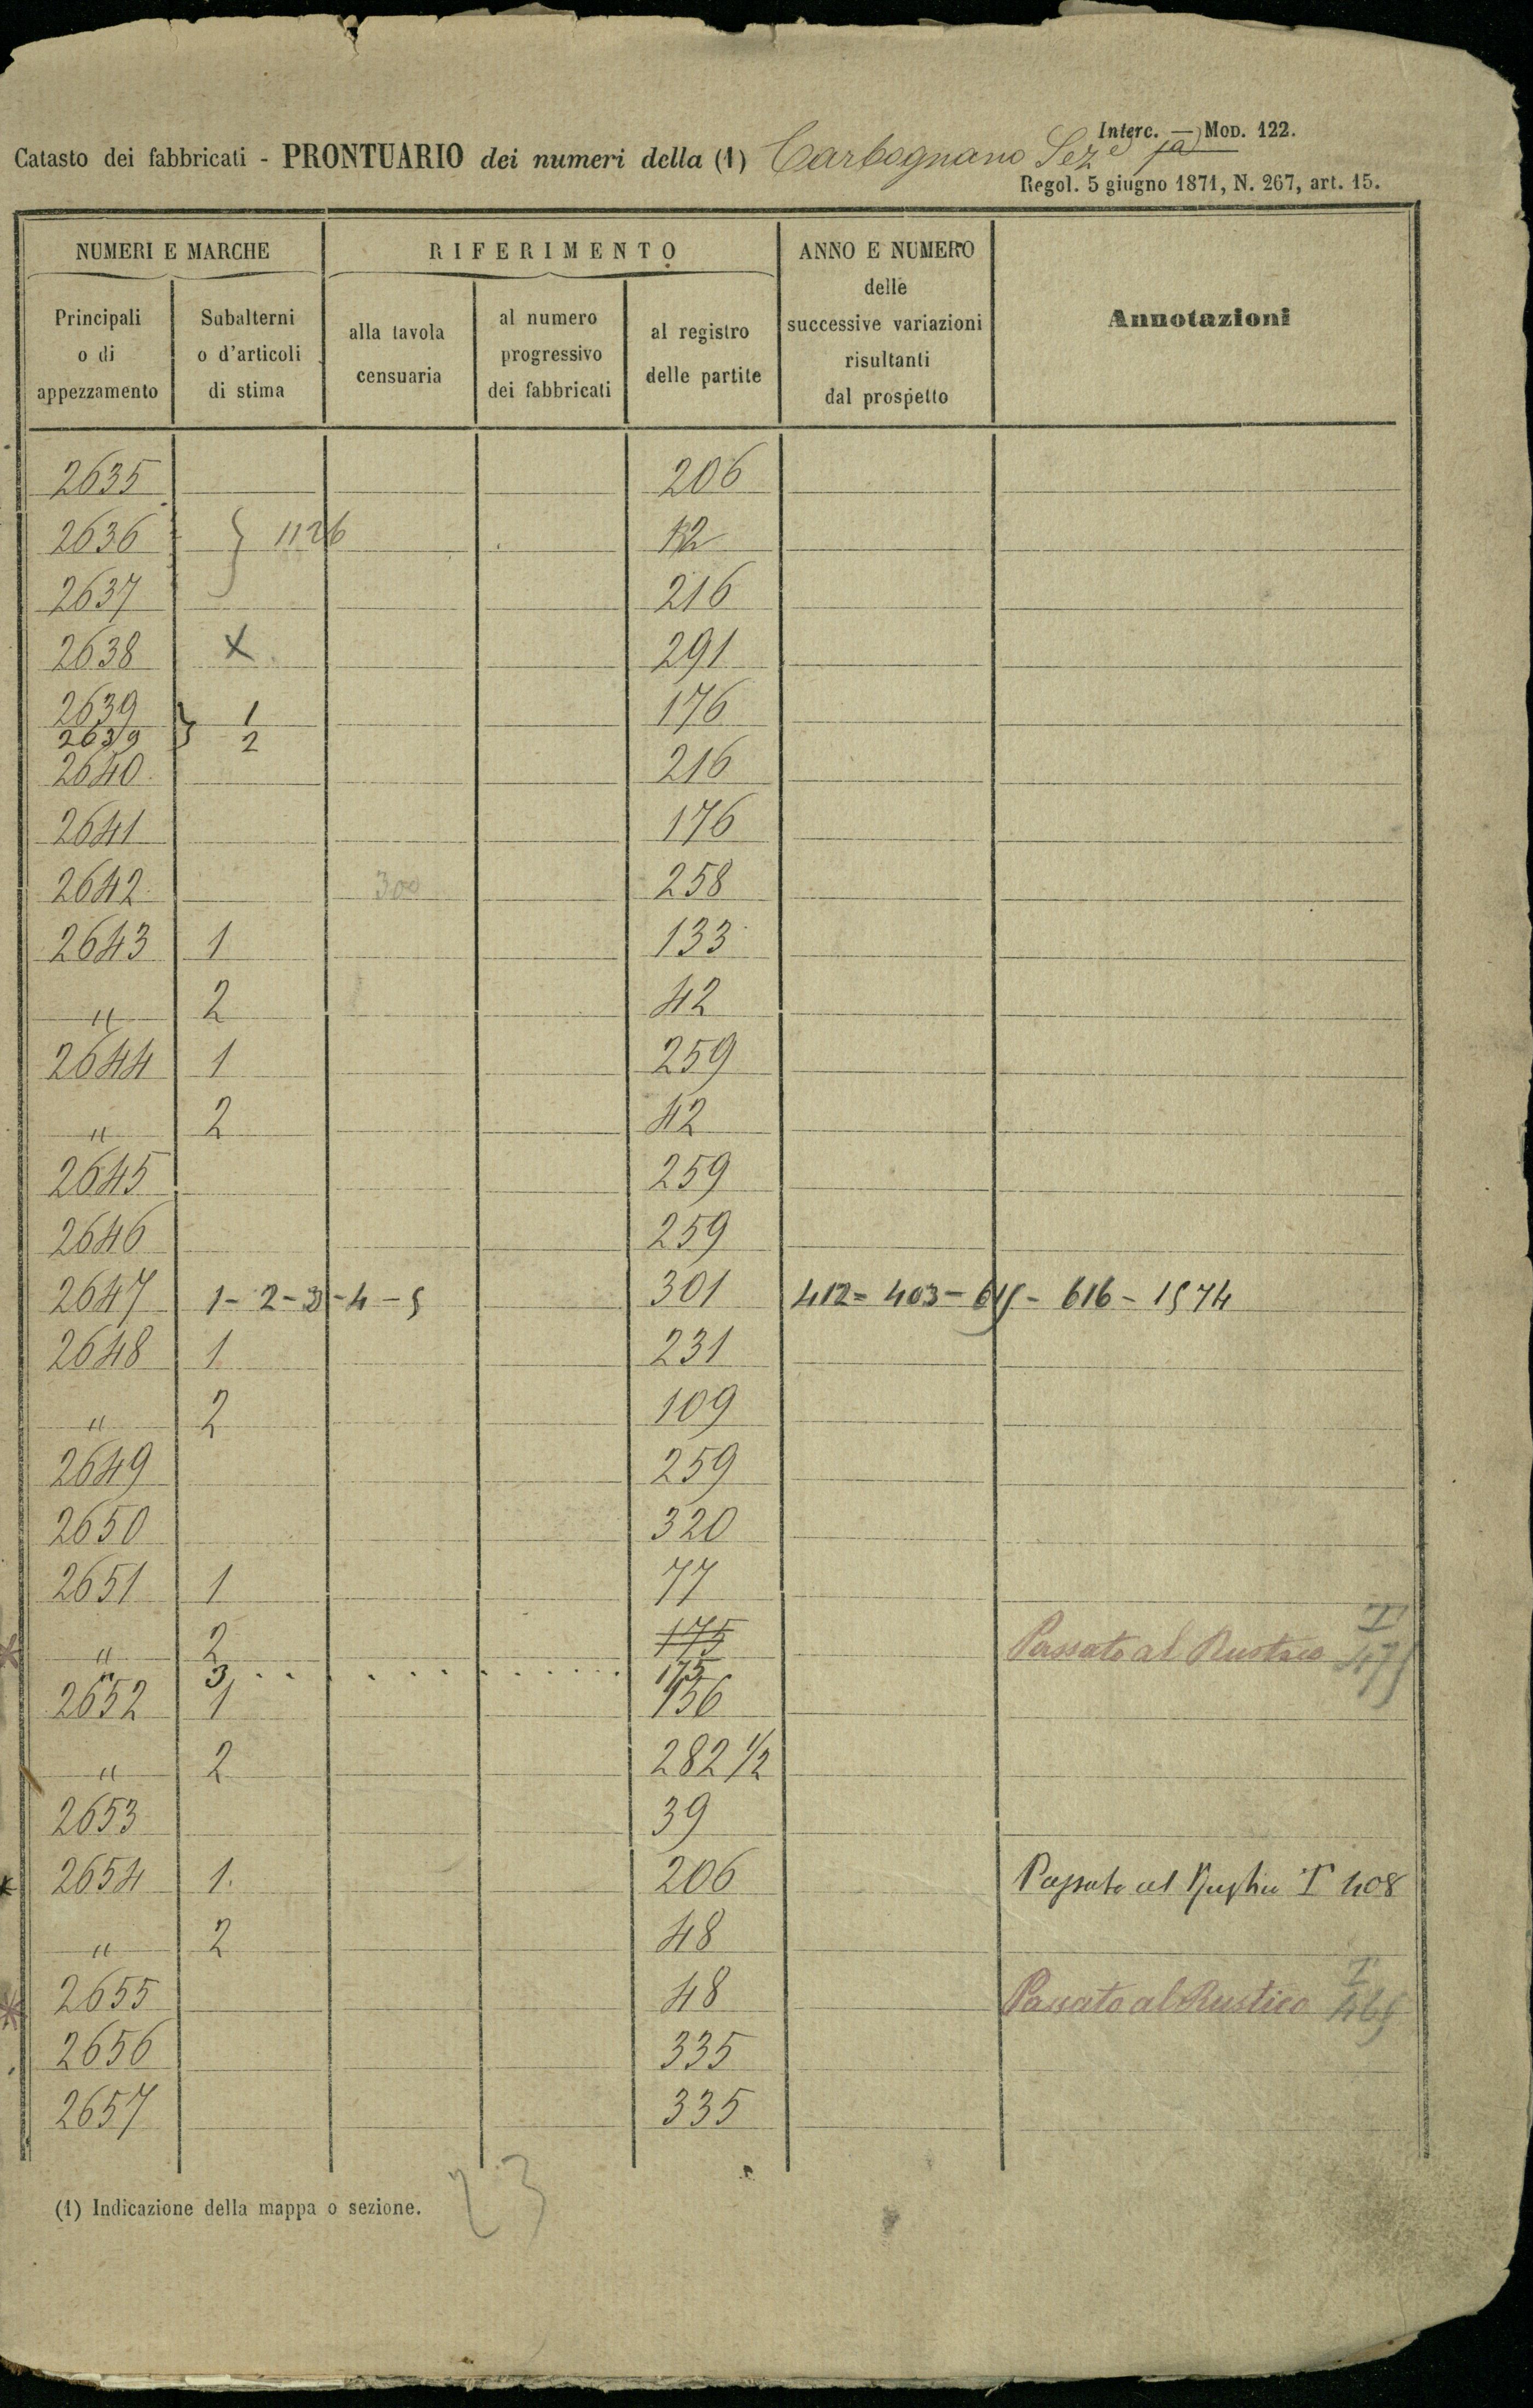 Interc. — Mod. 122.
Catasto dei fabbricati - PRONTUARIO dei numeri della (1) Carbognano Sez.e
Regol. 5 giugno 1871, N. 267, art. 15.
NUMERI E MARCHE
RIFERIMENTO
ANNO E NUMERO
delle
successive variazioni
risultanti
dal prospetto
Annotazioni
Principali
o di
appezzamento
Subalterni
o d'articoli
di stima
alla tavola
censuaria
al numero
progressivo
dei fabbricati
al registro
delle partite
2635 206
2636 } 1126
2637 216
2638 X 291
2639 } 1 176
2639 2
2640 216
2641 176
2642 300 258
2643 1 133
" 2 42
2644 1 259
" 2 42
2645 259
2646 259
2647 1-2-3-4-5 301 412= 403- 615- 616- 1574
2648 1 231
" 2 109
2649 259
2650 320
2651 1 77
" 2 175 Passato al Rustico I 475
" 3 . . . . . . . . . . . 175
2652 1 136
" 2 282 1/2
2653 39
2654 1. 206 Passato al Rustico I 408
" 2 48
2655 48 Passato al Rustico I 465
2656 335
2657 335
(1) Indicazione della mappa o sezione.
23